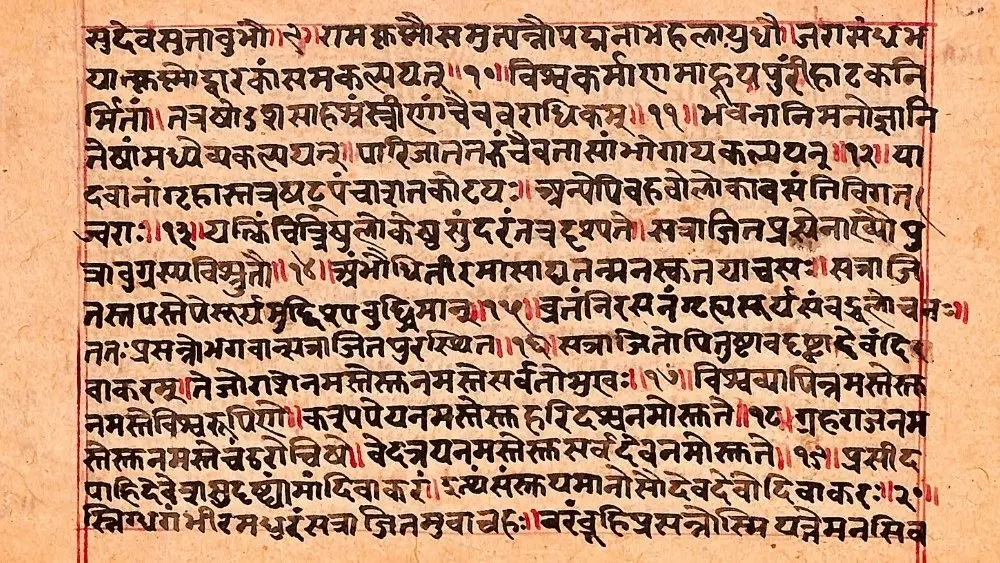 सुदेवसुतावुभौ॥९॥रामकृष्णौसमुत्पन्नौपद्मनाभहलायुधौ॥जरासंधभ
यात्कृष्णोद्वारकांसमकल्पयत्॥१०॥विश्वकर्माणमाहूयपुरींहाटकनि
र्मितां॥तत्रषोडशसाहस्रंस्त्रीणांचैववराधिकम्॥११॥भवनानिमनोज्ञानि
तेषांमध्येव्यकल्पयत्॥पारिजाततरुंचैवतासांभोगायकल्पयत्॥१२॥या
दवानांगृहास्तत्रषट्पंचाशतकोटयः॥अन्येपिबहवोलोकावसंतिविगत
ज्वराः॥१३॥यत्किंचित्रिषुलोकेषुसुंदरंतत्रदृश्यते॥सत्राजितप्रसेनाख्यौपु
त्रावुग्रस्यविश्रुतौ॥१४॥अंभौधितीरमासाद्यतन्मनस्कतयाचसः॥सत्राजि
तस्तपस्तेपेसूर्यमुद्दिश्यबुद्धिमान्॥१५॥व्रतंनिरसनंगृह्यसूर्यसंबद्धलोचनः॥
ततःप्रसन्नोभगवान्सत्राजितपुरस्थित॥१६॥सत्राजितोपितुष्टावदृष्ट्वादेवंदि
वाकरम्॥तेजोराशेनमस्तेस्तुनमस्तेसर्वतोमुखः॥१७॥विश्वव्यापिन्नमस्तेस्तु
नमस्तेविश्वरूपिणे॥काश्यपेयनमस्तेस्तुहरिदश्वनमोस्तुते॥१८॥ग्रहराजनम
स्तेस्तुनमस्तेचंडरोचिषे॥वेदत्रयनमस्तेस्तुसर्वदेवनमोस्तुते॥१९॥प्रसीद
पाहिदेवेशसुदृष्ट्यामांदिवाकरं॥इत्थंसंस्तूयमानोसौदेवदेवोदिवाकरः॥२०॥
स्निग्धगंभीरमधुरंसत्राजितमुवाचहः॥वरंब्रूहिप्रसन्नोस्मियत्तेमनसिव